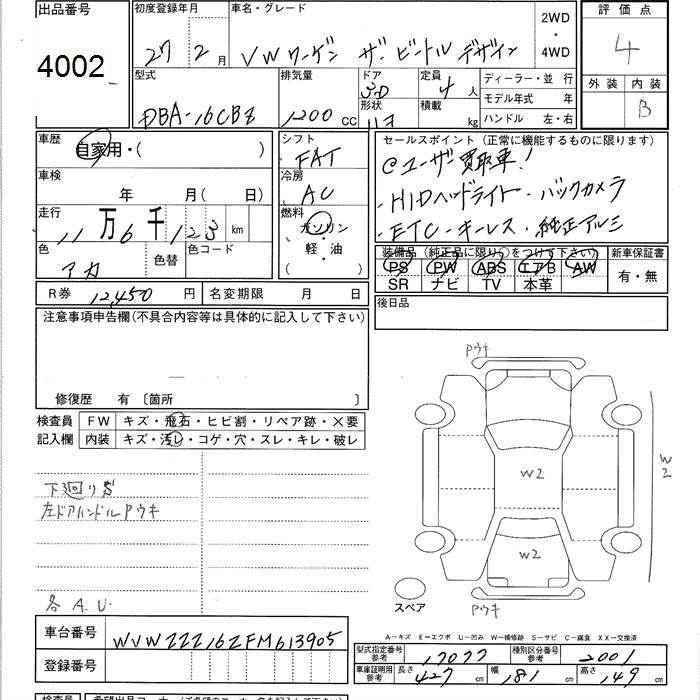 出品番号
4002
初度登録年月
27 年 2 月
車名・グレード
VWワーゲン ザ・ビートル デザイン
2WD
・
4WD
評価点
4
外装 内装
B
型式
DBA-16CBZ
排気量
1200 CC
ドア
3D
形状
定員
4 人
積載
kg
ディーラー・並 行
モデル年式 年
ハンドル 左・右
車歴
自家用・( )
車検
年 月( 日)
走行
11 万 6 千 123 km
色
アカ
色替
色コード
シフト
FAT
冷房
AC
燃料
ガソリン
・軽・油
( )
セールスポイント (正常に機能するものに限ります)
@ユーザー買取車!
・HIDヘッドライト・バックカメラ
・ETC・キーレス・純正アルミ
装備品 (純正品に限り○をつけて下さい) 新車保証書
PS PW ABS エアB AW
SR ナビ TV 本革
有・無
R券 12,450 円 名変期限 月 日
後日品
注意事項申告欄(不具合内容等は具体的に記入して下さい)
修復歴 有 〔箇所 〕
検査員
記入欄
FW キズ・飛石・ヒビ割・リペア跡・×要
内装 キズ・汚レ・コゲ・穴・スレ・キレ・破レ
下廻りS
左ドアハンドルPウキ
各A.U.
Pウキ
W2
W2
W2
Pウキ
スペア
A−キズ E−エクボ U−凹み W−補修跡 S−サビ C−腐食 XX−交換済
車台番号
WVWZZZ16ZFM613905
登録番号
型式指定番号
参考
17077
種別区分番号
参考
2001
車庫証明用
参考
長さ
427 cm
幅
181 cm
高さ
149 cm
検査員 希望出品コーナー